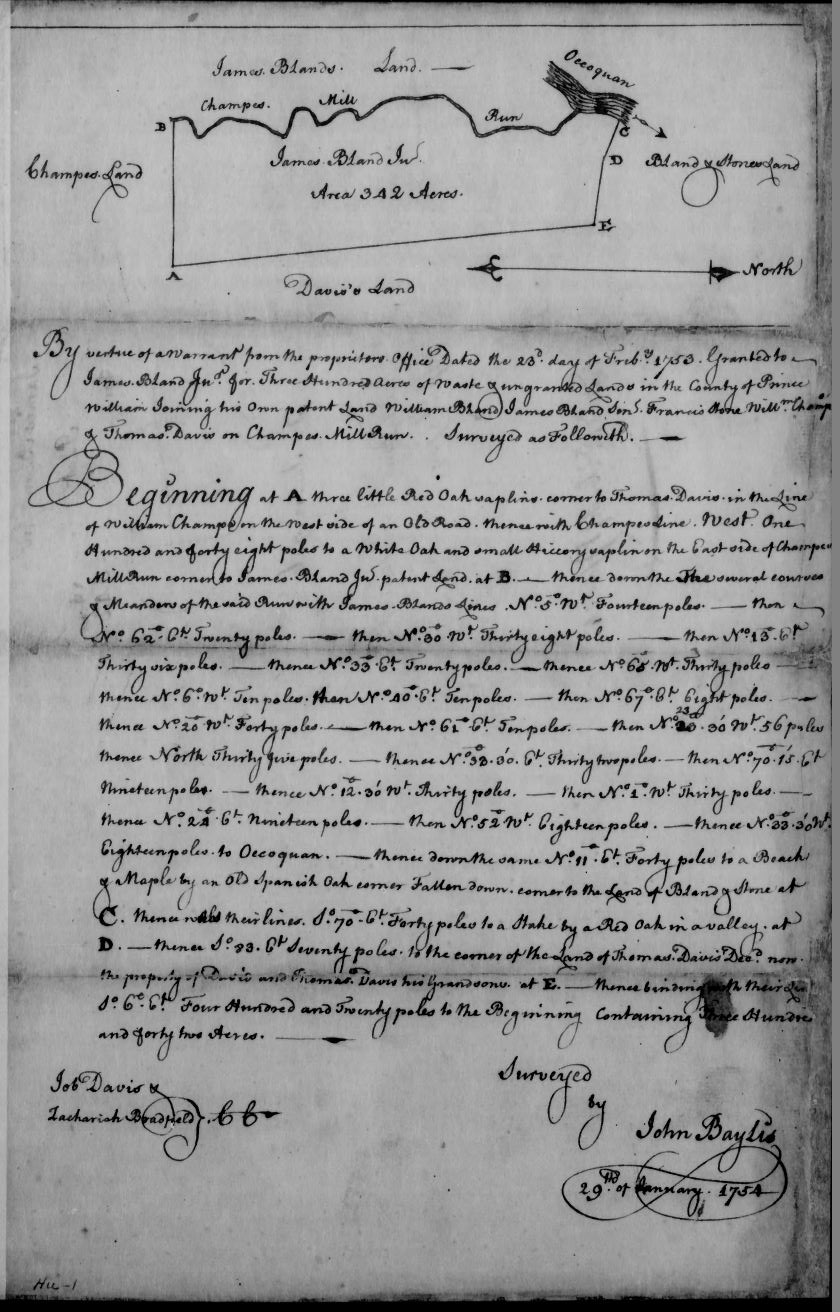 James Blands Land.
Occoquan
Champes. Mill Run
B
C
D
Champes Land
James Bland Junr.
Bland & Stones Land
Area 342 Acres.
E
A
North
Davis's Land
By vertue of a Warrant from the proprietors Office Dated the 23d. day of Feb.ry 1753. Granted to
James Bland Junr. for Three Hundred Acres of Waste & ungranted Lands in the County of Prince
William Joining his Own patent Land William Bland James Bland Sinr. Francis Stone Willm. Champe
& Thomas Davis on Champes Mill Run. Surveyed as Followeth.
Beginning at A three little Red Oak saplins corner to Thomas Davis in the Line
of William Champe on the West side of an Old Road. thence with Champes Line. West One
Hundred and forty eight poles to a White Oak and small Hiccory saplin on the East side of Champes
Mill Run corner to James Bland Junr. patent Land. at B. thence down the The several courses
& Meanders of the said Run with James Blands Lines. No. 5° Wt. Fourteen poles. then
No. 62° Et. Twenty poles. then No. 30° Wt. Thirty eight poles. then No. 13° Et.
Thirty six poles. thence No. 33° Et. Twenty poles. thence No. 65° Wt. Thirty poles
thence No. 6° Wt. Ten poles. then No. 40° Et. Ten poles. then No. 67° Et. Eight poles.
thence No. 20° Wt. Forty poles. then No. 61° Et. Ten poles. then No. 23° 30' Wt. 56 poles
thence North Thirty five poles. thence No. 38° 30' Et. Thirty two poles. then No. 70° 15' Et.
Nineteen poles. thence No. 12° 30' Wt. Thirty poles. then No. 1° Wt. Thirty poles.
thence No. 24° Et. Nineteen poles. then No. 52° Wt. Eighteen poles. thence No. 33° 30' Wt.
Eighteen poles to Occoquan. thence down the same No. 11° Et. Forty poles to a Beach
& Maple by an Old Spanish Oak corner Fallen down. corner to the Land of Bland & Stone at
C. thence with their lines. So. 70° Et. Forty poles to a Stake by a Red Oak in a valley. at
D. thence So. 83° Et. Seventy poles. to the corner of the Land of Thomas Davis Decd. now
the property of Davis and Thomas Davis his Grandsons. at E. thence binding with their
So. 6° Et. Four Hundred and Twenty poles to the Beginning Containing Three Hundred
and forty two Acres.
Job Davis &
Zachariah Bradfield } CC
Surveyed
by
John Baylis
29th of January. 1754
Hic-1